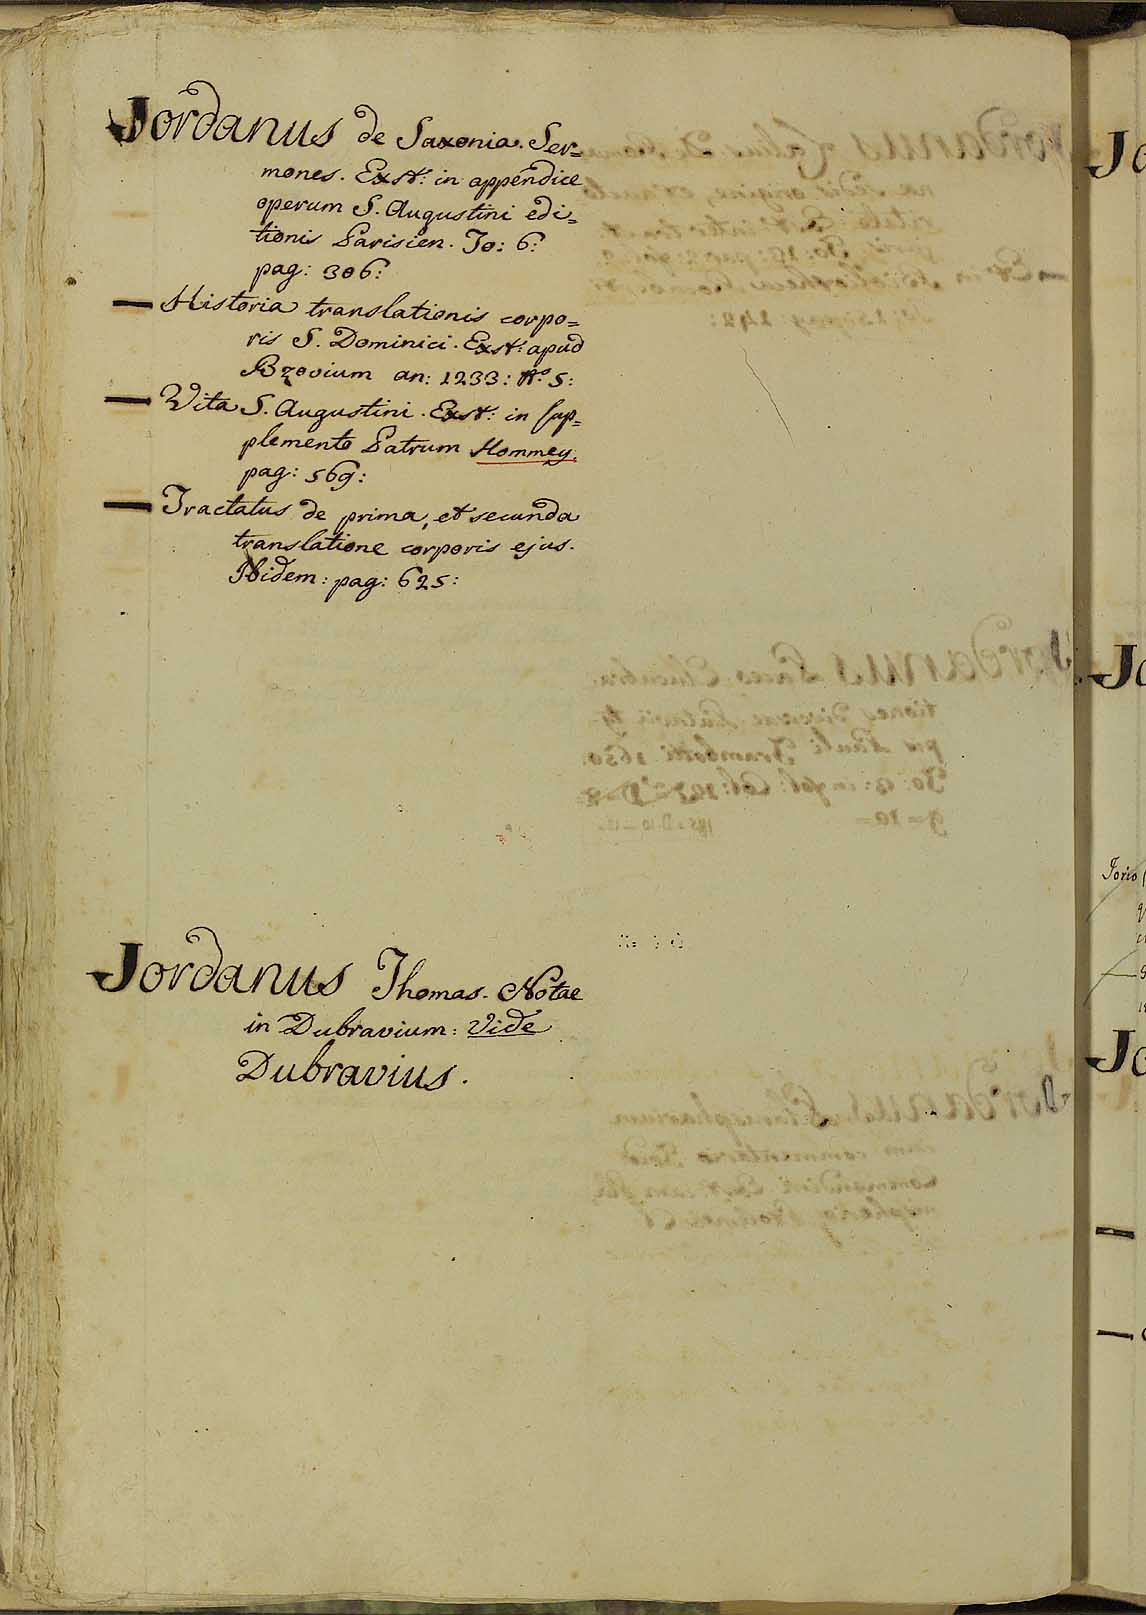 Jordanus de Saxonia. Ser=
mones. Exst: in appendice
operum S. Augustini edi=
tionis Parisien. To: 6:
pag: 306:
— Historia translationis corpo=
ris S. Dominici. Exst: apud
Bzovium an: 1233: No. 5:
— Vita S. Augustini. Exst: in sup=
plemento Patrum Hommey.
pag: 569:
— Tractatus de prima, et secunda
translatione corporis ejus.
Ibidem: pag: 625:
Jordanus Thomas. Notae
in Dubravium: Vide
Dubravius.
Jo
Jo
Jorio
Jo